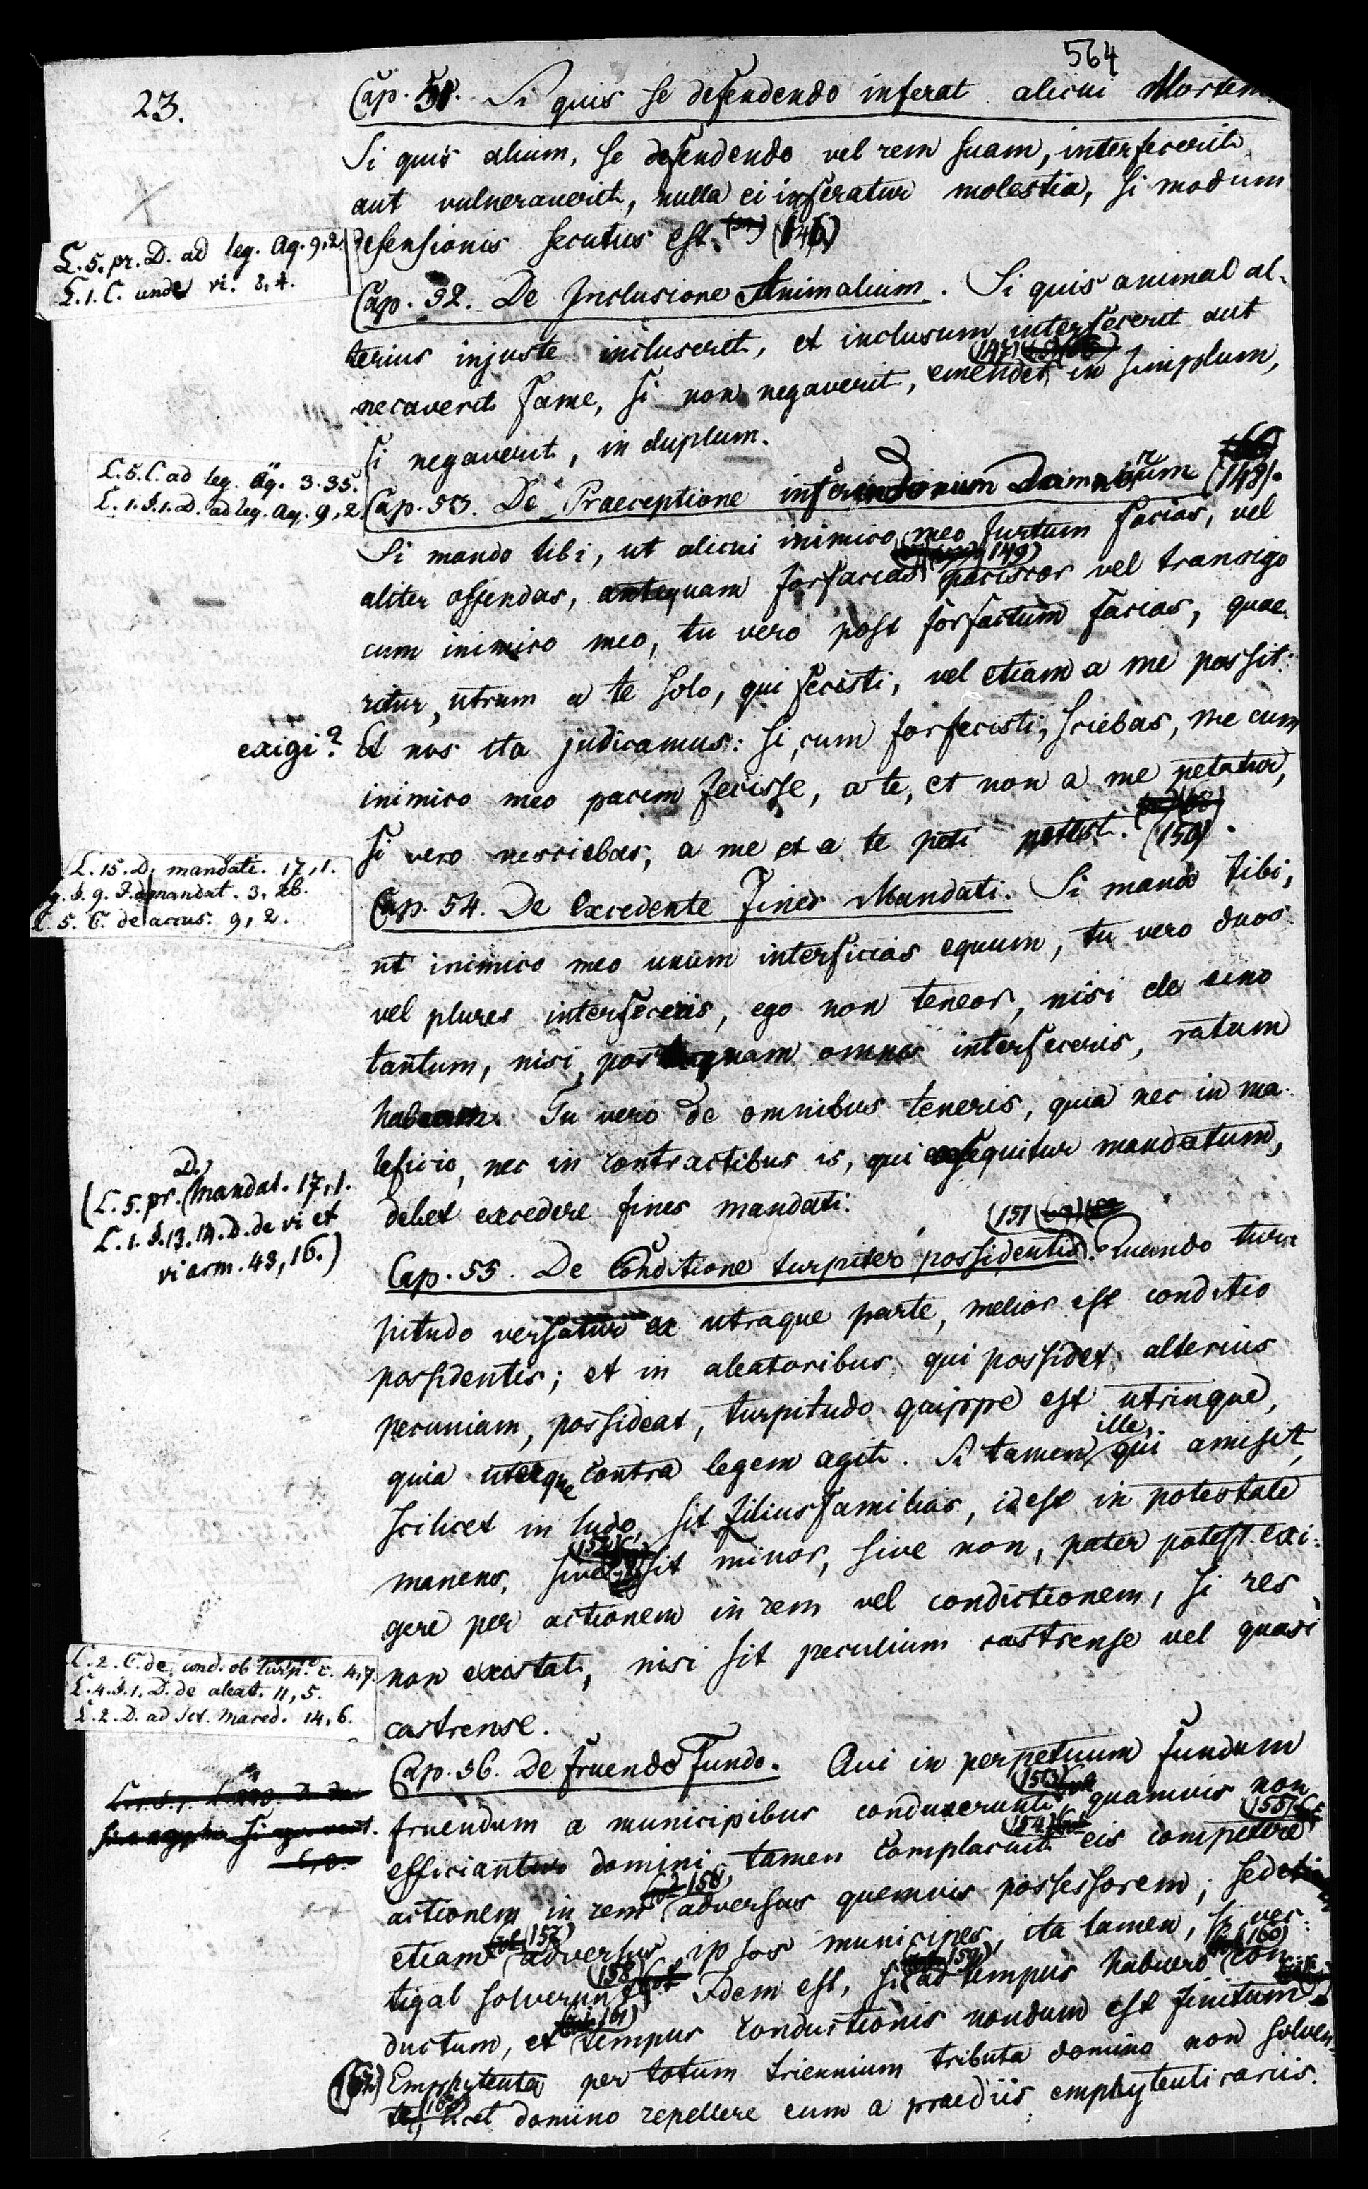 564
23.
Cap. 51. Si quis se defendendo inferat alicui Mortem.
Si quis alium, se defendendo vel rem suam, interfecerit
aut vulneraverit, nulla ei inferatur molestia, si modum
defensionis secutus est. (146)
L. 5. pr. D. ad leg. Aq. 9, 2.
L. 1. C. unde vi. 8, 4.
Cap. 52. De Inclusione Animalium. Si quis animal al-
terius injuste incluserit, et inclusum interfecerit aut
necaverit fame, si non negaverit, emendet (147) in simplum,
si negaverit, in duplum.
L. 5. C. ad leg. Aq. 3. 35.
L. 1. §. 1. D. ad leg. Aq. 9, 2.
Cap. 53. De Praeceptione inferendorum Damnorum (148).
Si mando tibi, ut alicui inimico meo furtum facias, vel
aliter offendas, antequam forfacias (149) paciscor vel transigo
cum inimico meo, tu vero post forfactum facias, quae-
ritur, utrum a te solo, qui fecisti, vel etiam a me possit
exigi? Et nos ita judicamus: si, cum forfecisti, sciebas, me cum
inimico meo pacem fecisse, a te, et non a me petatur,
si vero nesciebas, a me et a te peti potest. (150).
L. 15. D. mandati. 17, 1.
§. 9. I. de mandat. 3, 26.
L. 5. C. de accus. 9, 2.
Cap. 54. De Excedente Fines Mandati. Si mando tibi,
ut inimico meo unum interficias equum, tu vero duos
vel plures interfeceris, ego non teneor, nisi de uno
tantum, nisi, postquam omnes interfeceris, ratum
habeam. Tu vero de omnibus teneris, quia nec in ma-
leficio, nec in contractibus is, qui exsequitur mandatum,
debet excedere fines mandati.
(L. 5. pr. D. Mandat. 17, 1.
L. 1. §. 13. 14. D. de vi et
vi arm. 43, 16.)
Cap. 55. De Conditione turpiter possidentis (151). Quando tur-
pitudo versatur ex utraque parte, melior est conditio
possidentis; et in aleatoribus, qui possidet alterius
pecuniam, possideat, turpitudo quippe est utrinque,
quia uterque contra legem agit. Si tamen ille, qui amisit,
scilicet in ludo, sit filiusfamilias, id est in potestate
manens, sive (152) sit minor, sive non, pater potest exi-
gere per actionem in rem vel condictionem, si res
non exstat, nisi sit peculium castrense vel quasi
castrense.
L. 2. C. de cond. ob turp. c. 4, 7.
L. 4. §. 1. D. de aleat. 11, 5.
L. 2. D. ad Sct. Maced. 14, 6.
Cap. 56. De fruendo Fundo. Qui in perpetuum fundum
fruendum a municipibus conduxerunt (153), quamvis non
efficiantur domini, tamen complacuit (154) eis competere (155)
actionem in rem (156) adversus quemvis possessorem; sed
etiam (157) adversus ipsos municipes, ita tamen, si vec-
tigal solverunt (158). Idem est, si (159) ad tempus habuero (160) con-
ductum, et (161) tempus conductionis nondum est finitum.
(162) Emphyteuta per totum triennium tributa domino non solven-
te, (163) licet domino repellere eum a praediis emphyteuticariis.